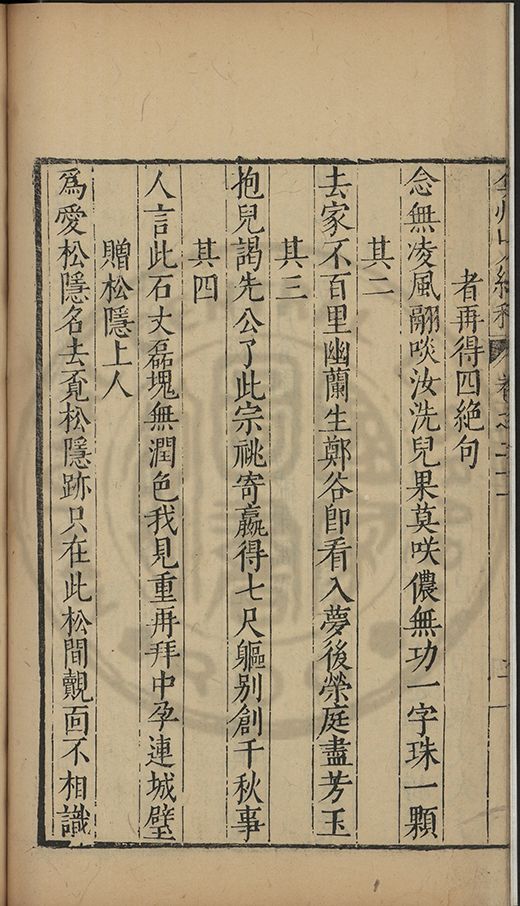 者再得四絶句
念無凌風翮啖汝洗兒果莫咲儂無功一字珠一顆
其二
去家不百里幽蘭生鄭谷卽看入夢後榮庭盡芳玉
其三
抱兒謁先公了此宗祧寄贏得七尺軀别創千秋事
其四
人言此石丈磊塊無潤色我見重再拜中孕連城璧
贈松隱上人
爲愛松隱名去覔松隱跡只在此松間覿面不相識